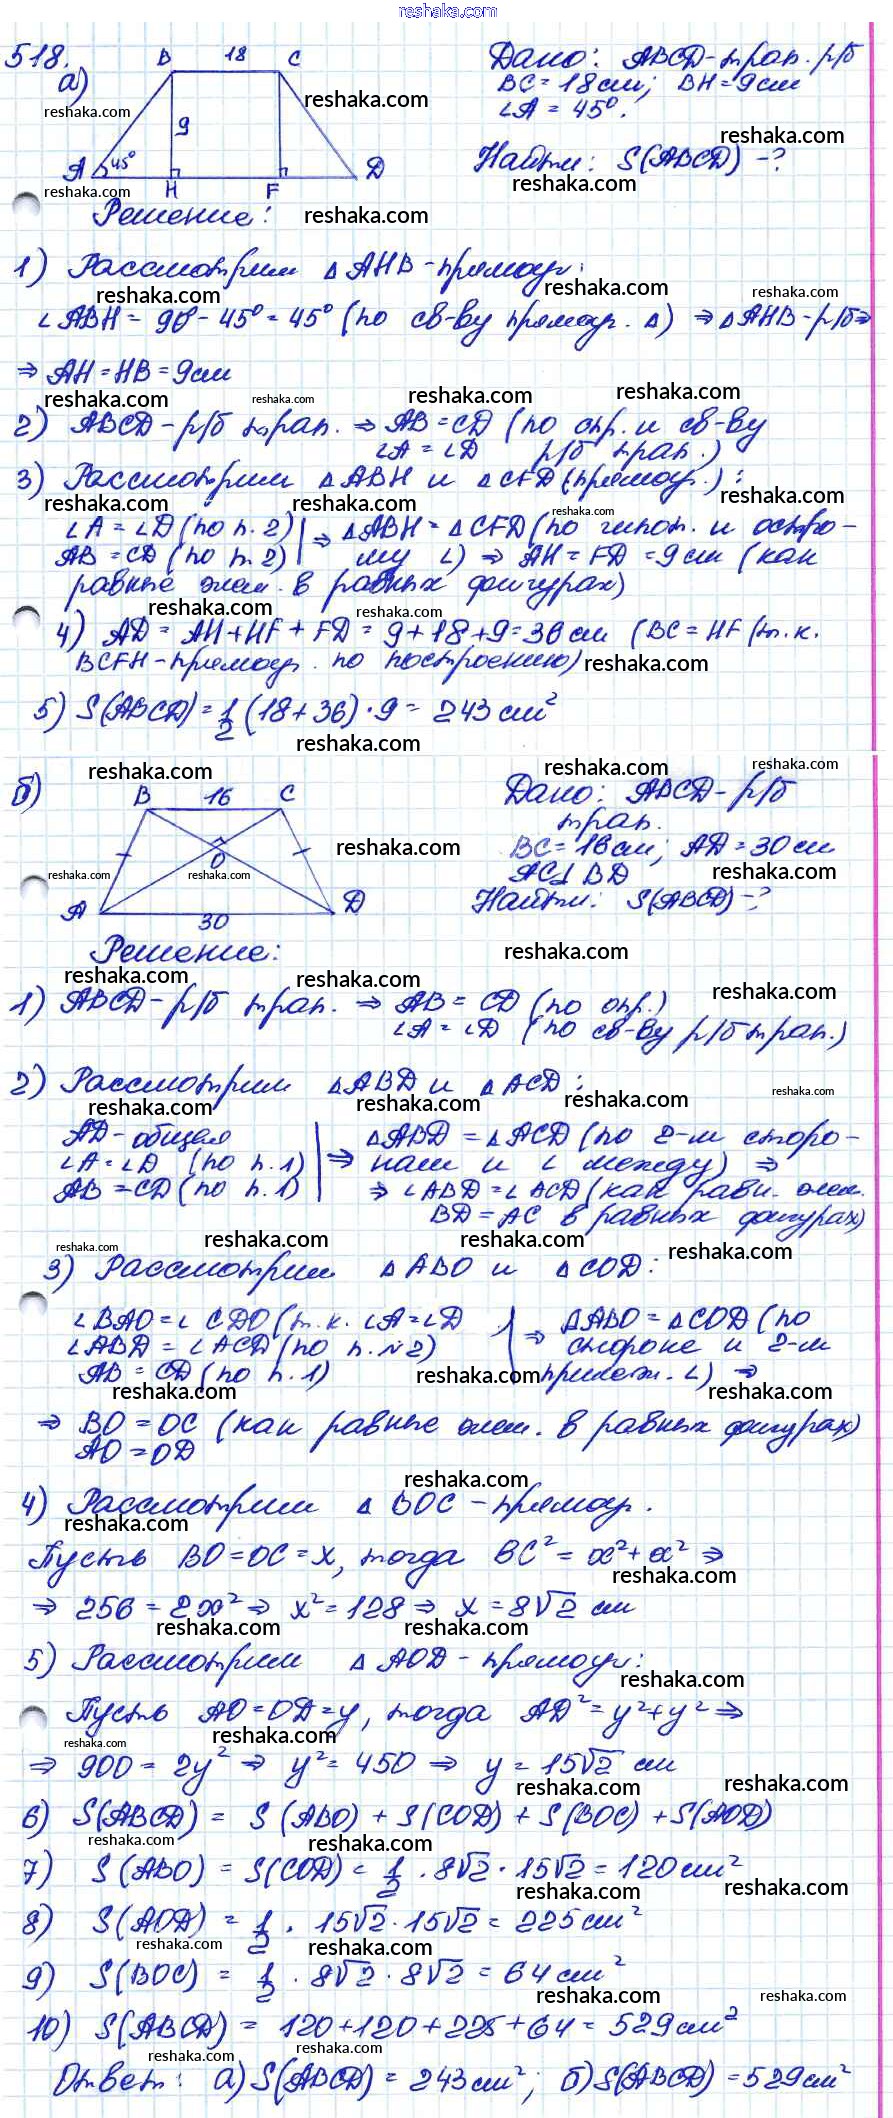 reshaka.com
518.
а)
B 18 C
9
A 45° H F D
Дано: ABCD-трап. р/б
BC=18см; BH=9см
∠A = 45°.
Найти: S(ABCD) -?
Решение:
1) Рассмотрим △AHB-прямоуг.:
∠ABH = 90°-45°=45° (по св-ву прямоуг. △) ⇒ △AHB-р/б⇒
⇒ AH=HB=9см
2) ABCD-р/б трап. ⇒ AB=CD (по опр. и св-ву
∠A = ∠D р/б трап.)
3) Рассмотрим △ABH и △CFD (прямоуг.):
∠A = ∠D (по п.2) | ⇒ △ABH = △CFD (по гипот. и остро-
AB = CD (по п.2) | му ∠) ⇒ AH = FD = 9см (как
равные элем. в равных фигурах)
4) AD = AH+HF+FD = 9+18+9=36см (BC=HF (т.к.
BCFH-прямоуг. по построению)
5) S(ABCD)=1/2 (18+36)·9= 243см²
б)
B 16 C
O
A 30 D
Дано: ABCD-р/б
трап.
BC=16см; AD=30см
AC⊥BD
Найти: S(ABCD)-?
Решение:
1) ABCD-р/б трап. ⇒ AB = CD (по опр.)
∠A = ∠D (по св-ву р/б трап.)
2) Рассмотрим △ABD и △ACD:
AD-общая | △ABD = △ACD (по 2-м сторо-
∠A=∠D (по п.1) | ⇒ нам и ∠ между) ⇒
AB = CD (по п.1) | ⇒ ∠ABD=∠ACD (как равн. элем.
BD=AC в равных фигурах)
3) Рассмотрим △ABO и △COD:
∠BAO=∠CDO (т.к. ∠A=∠D | △ABO = △COD (по
∠ABD = ∠ACD (по п.№2) | ⇒ стороне и 2-м
AB = CD (по п.1) | прилеж. ∠) ⇒
⇒ BO=OC (как равные элем. в равных фигурах)
AO=OD
4) Рассмотрим △BOC-прямоуг.
Пусть BO=OC=x, тогда BC²=x²+x² ⇒
⇒ 256=2x² ⇒ x²=128 ⇒ x=8√2 см
5) Рассмотрим △AOD-прямоуг.:
Пусть AO=OD=y, тогда AD²=y²+y² ⇒
⇒ 900=2y² ⇒ y²=450 ⇒ y=15√2 см
6) S(ABCD) = S(ABO)+S(COD)+S(BOC)+S(AOD)
7) S(ABO)=S(COD)=1/2·8√2·15√2=120см²
8) S(AOD)=1/2·15√2·15√2=225см²
9) S(BOC)=1/2·8√2·8√2=64см²
10) S(ABCD)=120+120+225+64=529см²
Ответ: а) S(ABCD)=243см²; б) S(ABCD)=529см²